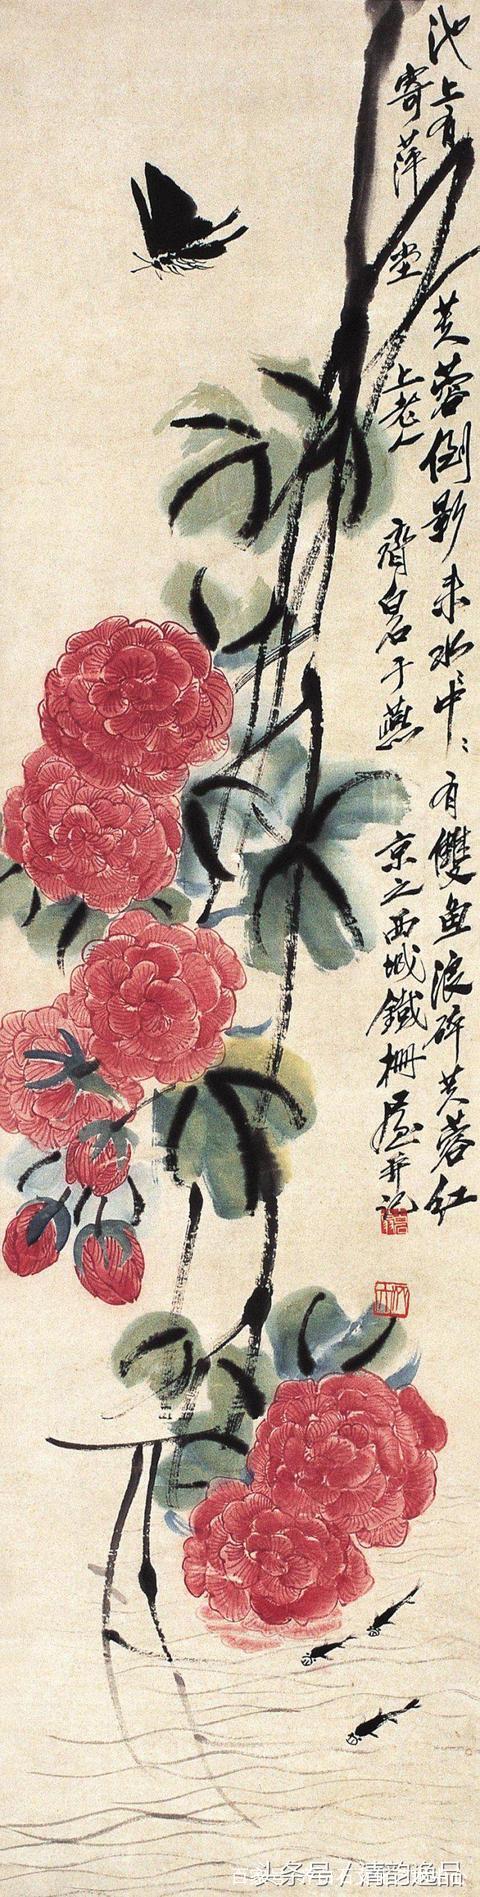 池上有芙蓉倒影来水〻中〻有雙魚浪碎芙蓉红
寄萍堂上老人齊白石于燕京之西城鐵柵屋并记
头条号/清韵逸品